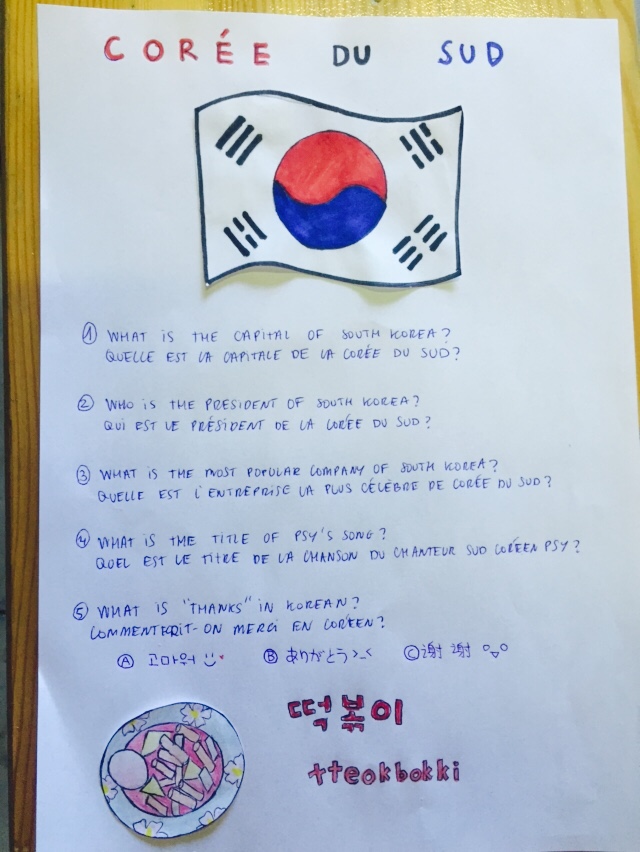 CORÉE DU SUD
① WHAT IS THE CAPITAL OF SOUTH KOREA?
QUELLE EST LA CAPITALE DE LA CORÉE DU SUD?
② WHO IS THE PRESIDENT OF SOUTH KOREA?
QUI EST LE PRÉSIDENT DE LA CORÉE DU SUD?
③ WHAT IS THE MOST POPULAR COMPANY OF SOUTH KOREA?
QUELLE EST L'ENTREPRISE LA PLUS CÉLÈBRE DE CORÉE DU SUD?
④ WHAT IS THE TITLE OF PSY'S SONG?
QUEL EST LE TITRE DE LA CHANSON DU CHANTEUR SUD CORÉEN PSY?
⑤ WHAT IS "THANKS" IN KOREAN?
COMMENT ÉCRIT-ON MERCI EN CORÉEN?
Ⓐ 고마워 Ⓑ ありがとう >_< Ⓒ 謝謝
떡볶이
tteokbokki